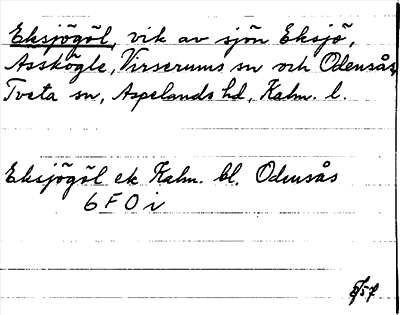 Eksjögöl, vik av sjön Eksjö,
Asskögle, Virserums sn och Odensås,
Tveta sn, Aspelands hd, Kalm. l.
Eksjögöl ek Kalm. bl. Odensås
6 F O i